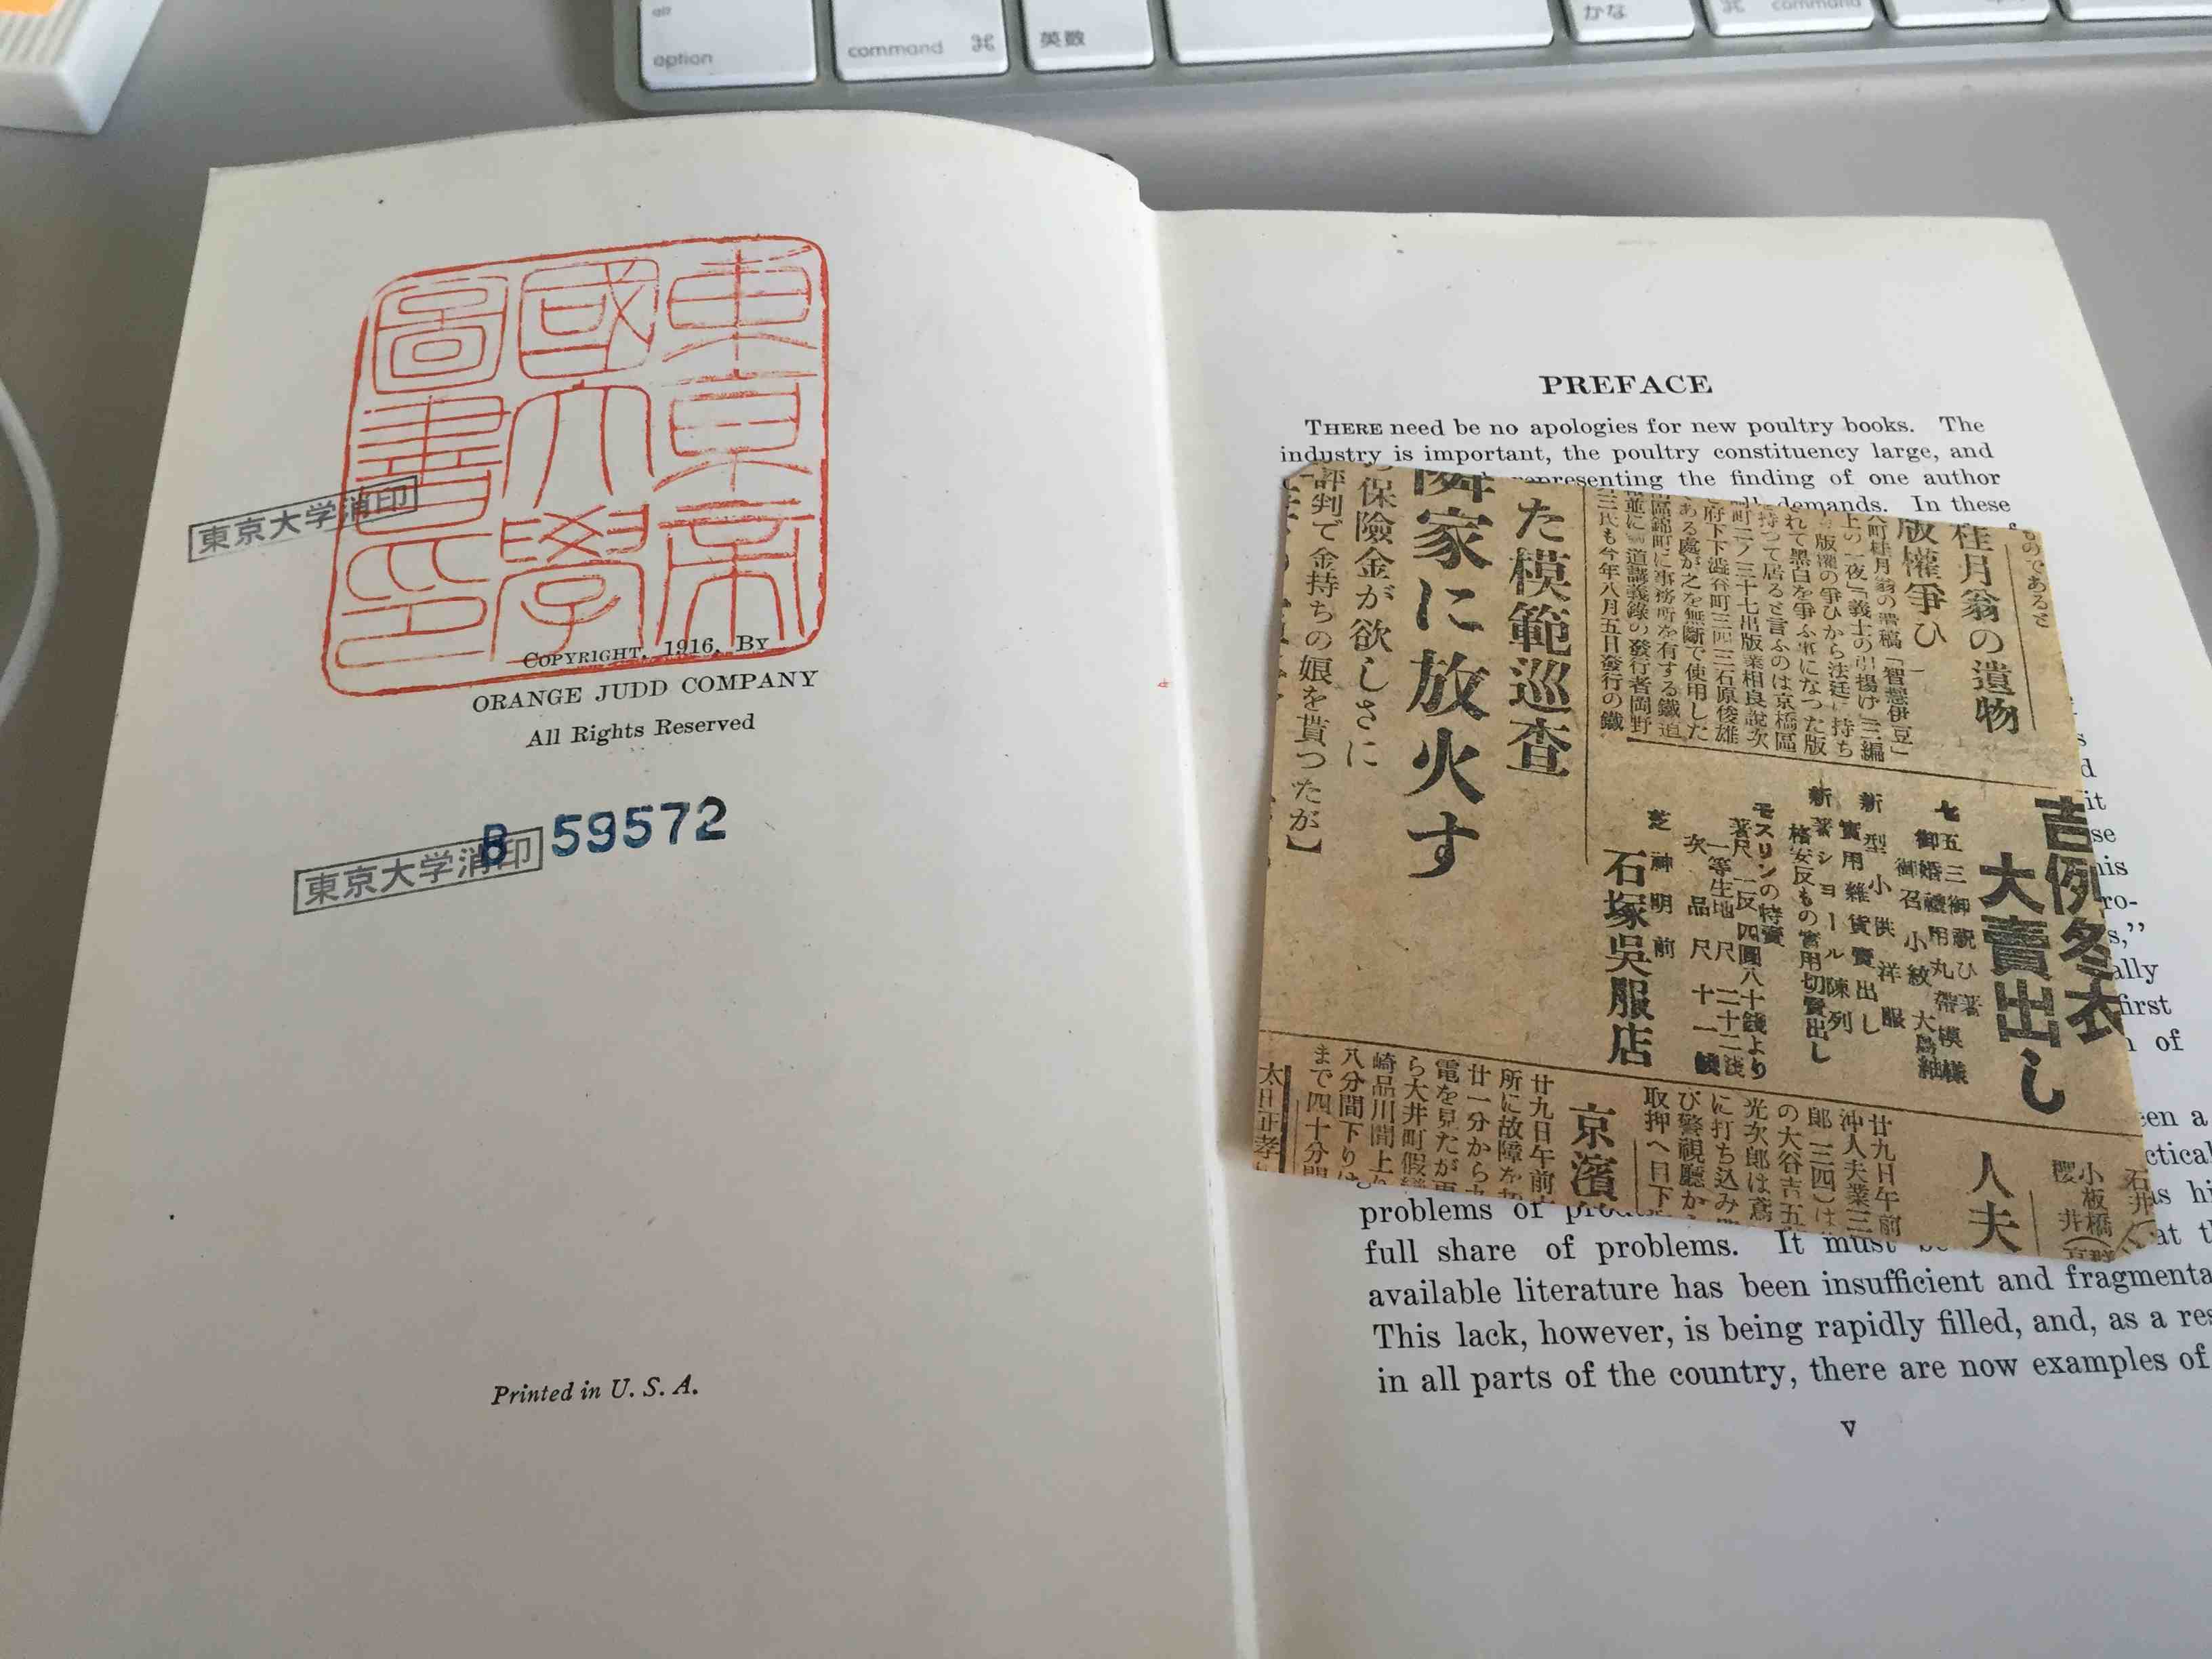 option
command ⌘
英数
かな
⌘ command
東京帝
國大學
圖書印
東京大学消印
COPYRIGHT, 1916, BY
ORANGE JUDD COMPANY
All Rights Reserved
B 59572
東京大学消印
Printed in U. S. A.
PREFACE
THERE need be no apologies for new poultry books. The
industry is important, the poultry constituency large, and
representing the finding of one author
demands. In these
桂月翁の遺物
版權爭ひ
町桂月翁の遺稿「智慧伊豆」
上の一夜「義士の引揚げ」三編
版權の爭ひから法廷に持ち
れて黑白を爭ふ事になつた版
持つて居ると言ふのは京橋區
町二ノ三十七出版業相良說次
府下下澁谷町三四三石原俊雄
ある處が之を無斷で使用した
區錦町に事務所を有する鐵道
並に 道講義錄の發行者岡野
三氏も今年八月五日發行の鐵
た模範巡査
隣家に放火す
保險金が欲しさに
評判で金持ちの娘を貰つたが】
吉例冬衣
大賣出し
七五三御祝ひ著
御婚禮用丸帶模樣
御召小紋大島紬
新型小供洋服
實用雜貨賣出し
新著ショール陳列
格安反もの實用切賣出し
モスリンの特賣
著尺一反四圓八十錢より
一等生地尺二十二錢
次品尺十一錢
芝神明前
石塚吳服店
石井
小板橋
櫻井
人夫
廿九日午前
沖人夫業三
郎(三四)は
の大谷吉五
光次郎は鳶
に打ち込み
び警視廳か
取押へ目下
京濱
廿九日午前
所に故障を
廿一分から
電を見たが
ら大井町假
崎品川間上り
八分間下りは
まで四十分間
太田正孝
problems of
full share of problems. It must
available literature has been insufficient and fragmenta
This lack, however, is being rapidly filled, and, as a res
in all parts of the country, there are now examples of
v